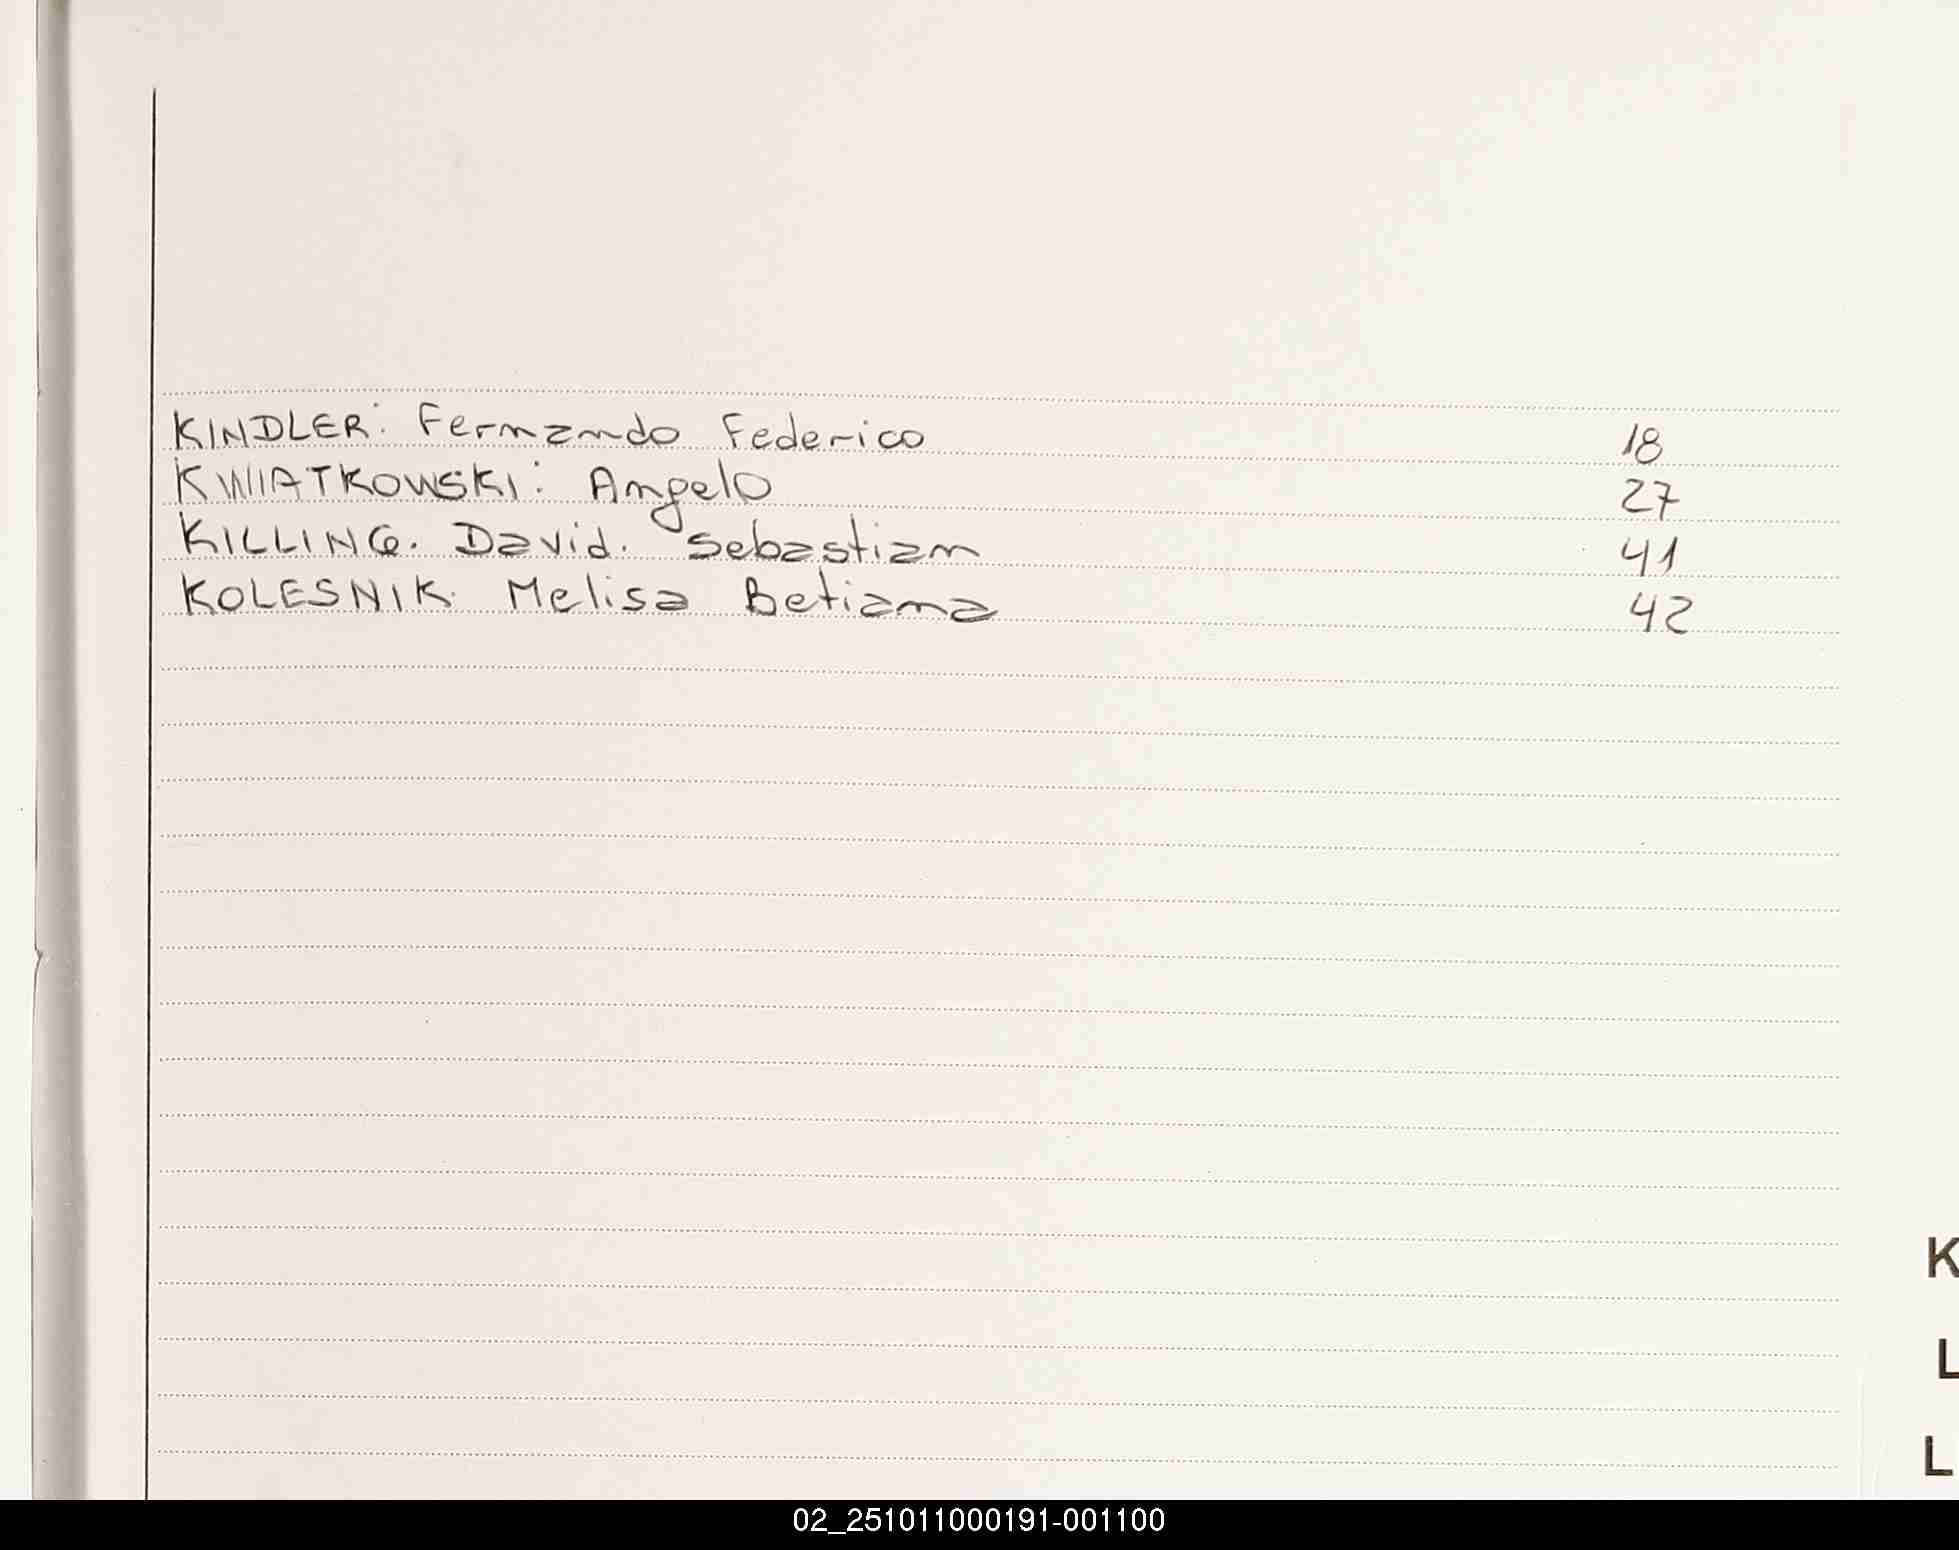 KINDLER: Fernando Federico 18
KWIATKOWSKI: Angelo 27
KILLING. David. Sebastian 41
KOLESNIK. Melisa Betiana 42
K
L
L
02_251011000191-001100